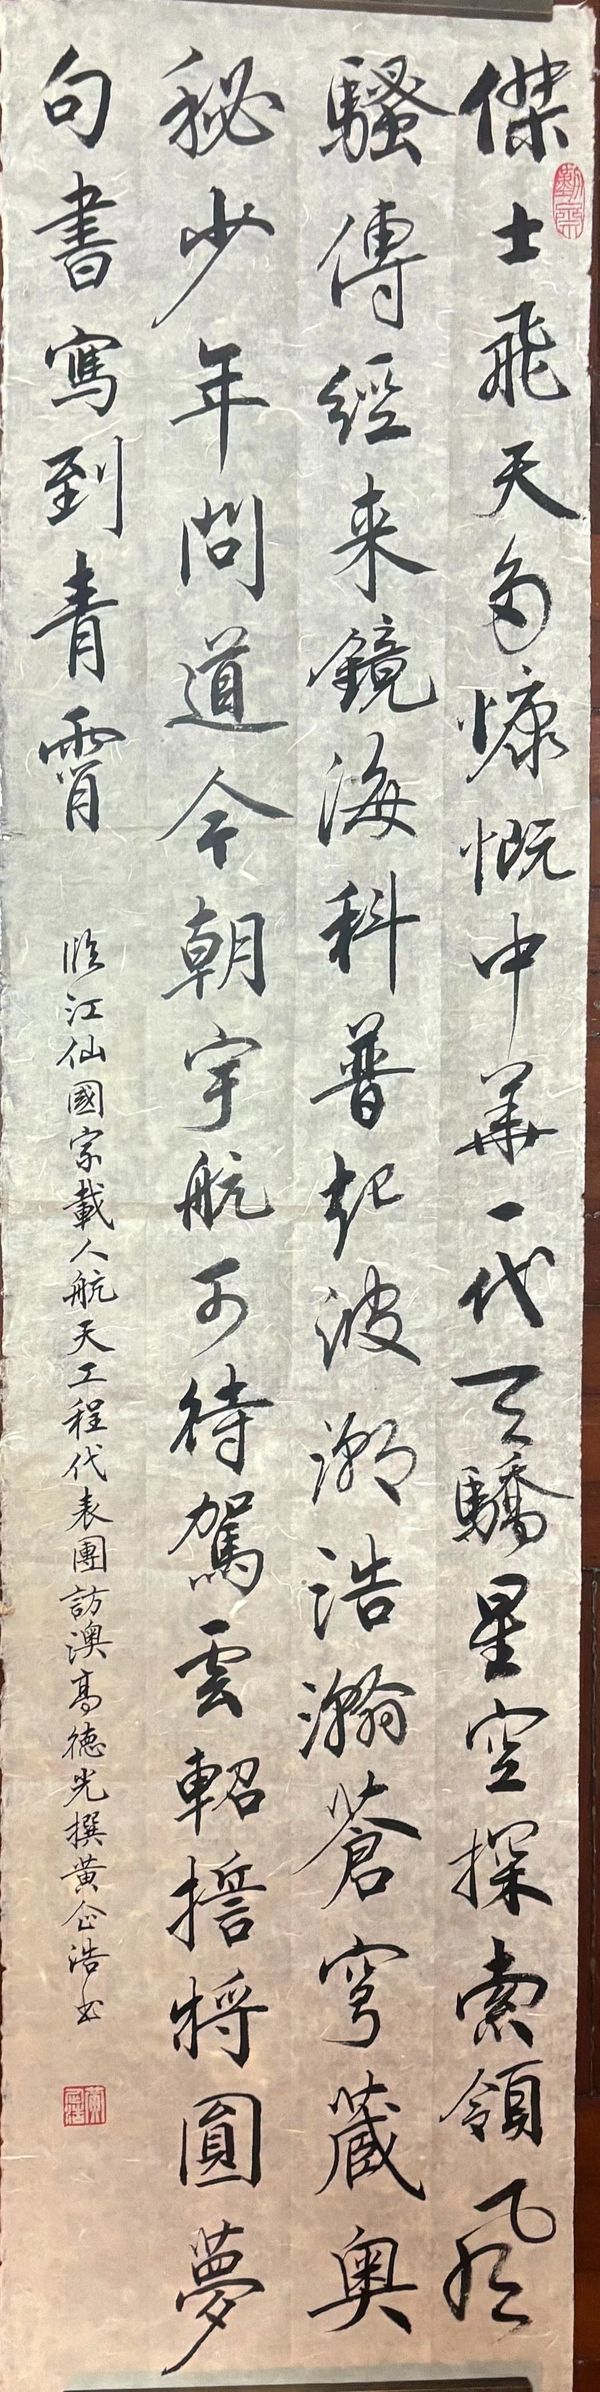 傑士飛天多慷慨中華一代天驕星空探索領風
騷傳經来鏡海科普起波潮浩瀚蒼穹藏奥
秘少年問道今朝宇航可待駕雲軺擔將圓夢
句書寫到青霄
臨江仙國家載人航天工程代表團訪澳高德光撰黄企浩书